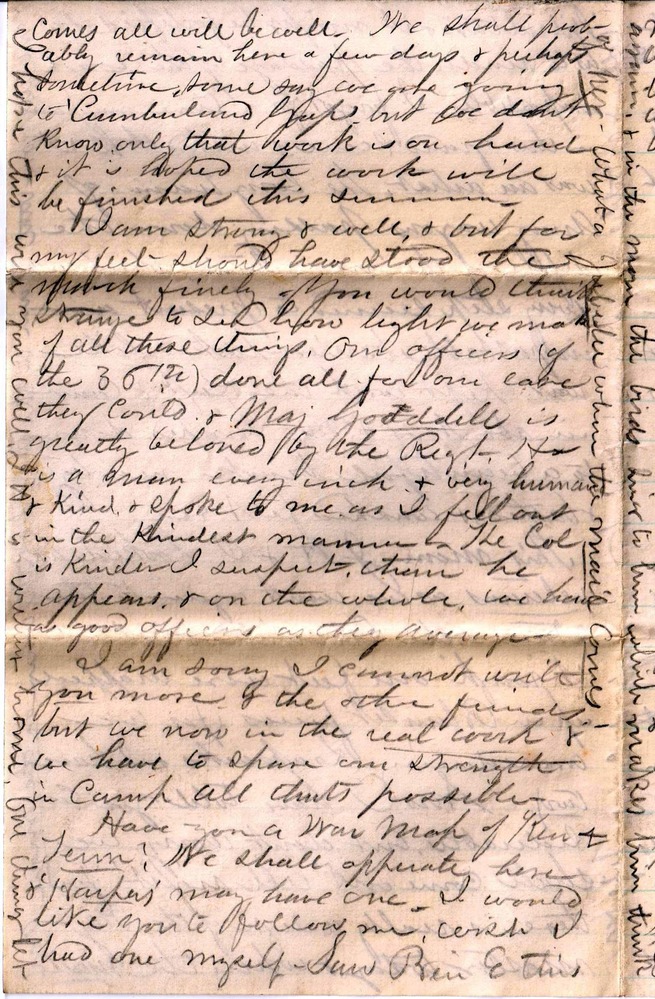 comes all will be well. We shall prob-
ably remain here a few days & perhaps
sometime, some say we are going
to Cumberland Gap, but we dont
know only that work is on hand
& it is hoped the work will
be finished this summer
I am strong & well, & but for
my feet should have stood the
march finely. You would think
strange to see how light we make
of all these things. Our officers (of
the 36th) done all for our ease
they could & Maj Gooddell is
greatly beloved by the Regt. He
is a man every inch & very human
& kind & spoke to me as I fell out
in the kindest manner - The Col
is kinder I suspect, than he
appears, & on the whole, we have
as good officers as they average
I am sorry I cannot write
you more & the other friends,
but we now in the real work &
we have to spare our strength
in Camp all thats possible-
Have you a War Map of Ken &
Tenn? We shall opperate here
& 'Harpers' may have one - I would
like you to follow me, wish I
had one myself - Saw Ben E this
hope this will you well
what a Jubilee when the mail comes!
again, & in the morn the birds sing to him which makes him think